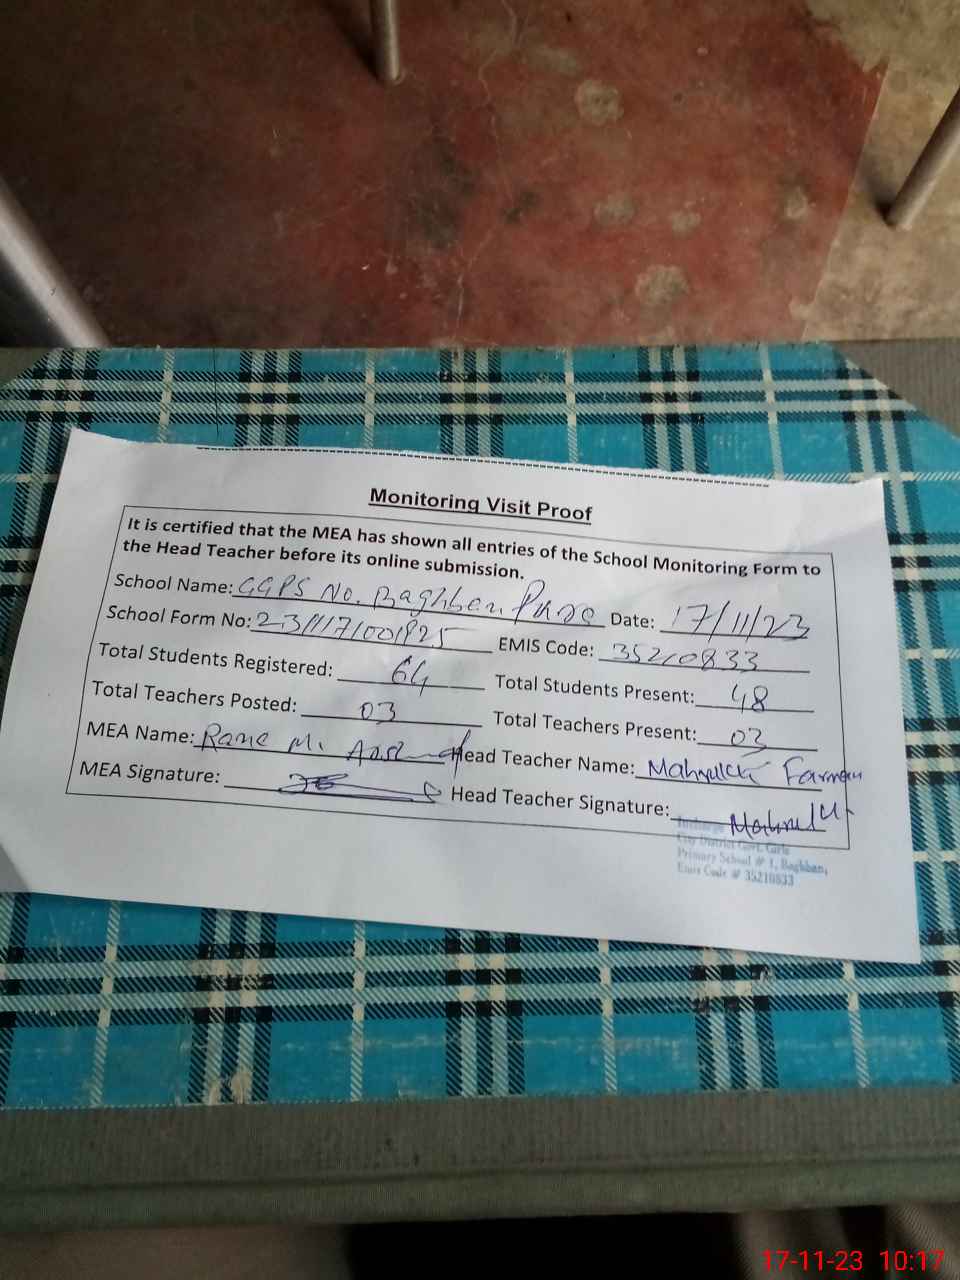 Monitoring Visit Proof
It is certified that the MEA has shown all entries of the School Monitoring Form to
the Head Teacher before its online submission.
School Name: GGPS No. Baghban Pura Date: 17/11/23
School Form No: EMIS Code: 35210833
Total Students Registered: 64 Total Students Present: 48
Total Teachers Posted: 03 Total Teachers Present: 03
MEA Name: Rana M. Head Teacher Name:
MEA Signature: Head Teacher Signature:
City District Govt. Girls
Primary School # 1, Baghban,
Emis Code # 35210833
17-11-23 10:17